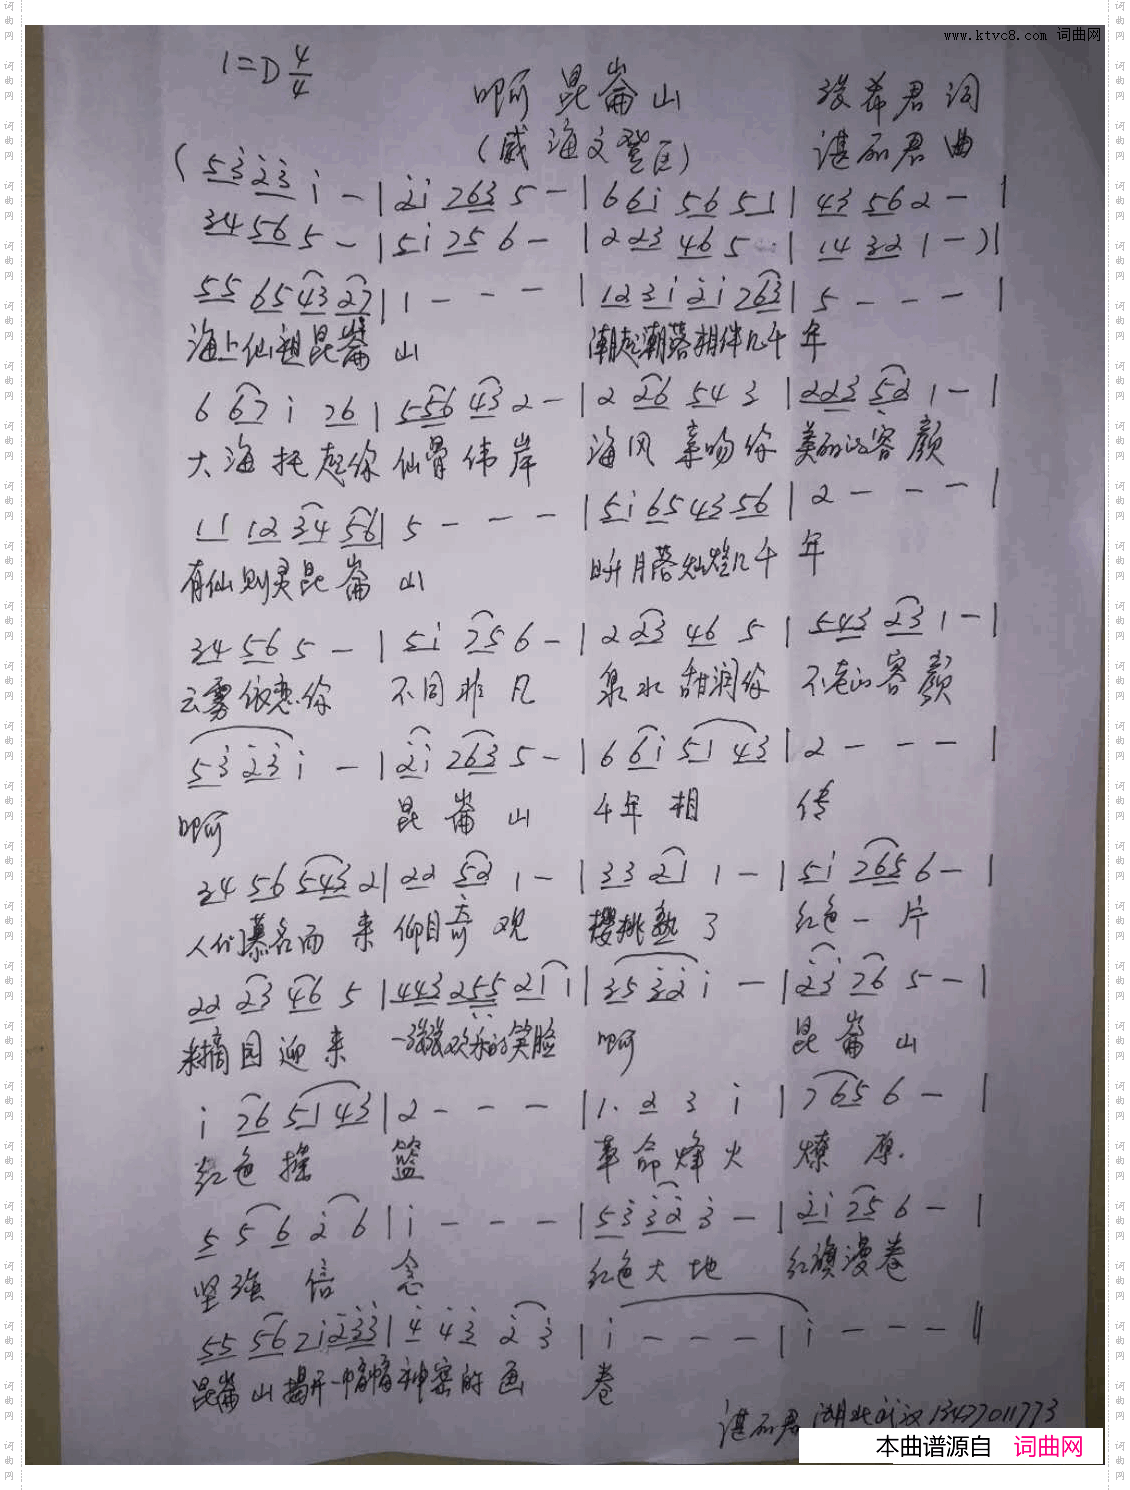 www.ktvc8.com 词曲网
1=D 4/4
啊 昆嵛山
张希君 词
(威海文登区)
谌丽君 曲
(53 23 1 - | 21 763 5 - | 6 61 56 51 | 43 56 2 - |
34 56 5 - | 51 75 6 - | 2 23 46 5 | 14 32 1 -)|
55 65 43 27 | 1 - - - | 12 31 21 763 | 5 - - - |
海上仙祖昆嵛 山 潮起潮落相伴几千 年
6 67 1 76 | 556 43 2 - | 2 26 54 3 | 223 52 1 - |
大海托起你 仙骨伟岸 海风亲吻你 美丽的容颜
11 12 34 56 | 5 - - - | 51 65 43 56 | 2 - - - |
有仙则灵昆嵛 山 日升月落灿烂几千 年
34 56 5 - | 51 75 6 - | 2 23 46 5 | 543 23 1 - |
云雾依恋你 不同非凡 泉水甜润你 不老的容颜
53 23 1 - | 21 763 5 - | 6 61 51 43 | 2 - - - |
啊 昆嵛山 千年相 传
34 56 543 2 | 22 52 1 - | 33 21 1 - | 51 765 6 - |
人们慕名而来 仰目奇观 樱桃熟了 红色一片
22 23 46 5 | 443 255 21 1 | 35 32 1 - | 23 76 5 - |
采摘园迎来 一张张欢乐的笑脸 啊 昆嵛山
1 76 51 43 | 2 - - - | 1. 2 3 1 | 765 6 - |
红色摇 篮 革命烽火 燎原.
5 5 6 2 6 | 1 - - - | 53 32 3 - | 21 75 6 - |
坚强信 念 红色大地 红旗漫卷
55 56 71 233 | 4 43 2 3 | 1 - - - | 1 - - - ‖
昆嵛山揭开一幅幅神密的画 卷
谌丽君 湖北武汉 13477011773
本曲谱源自 词曲网